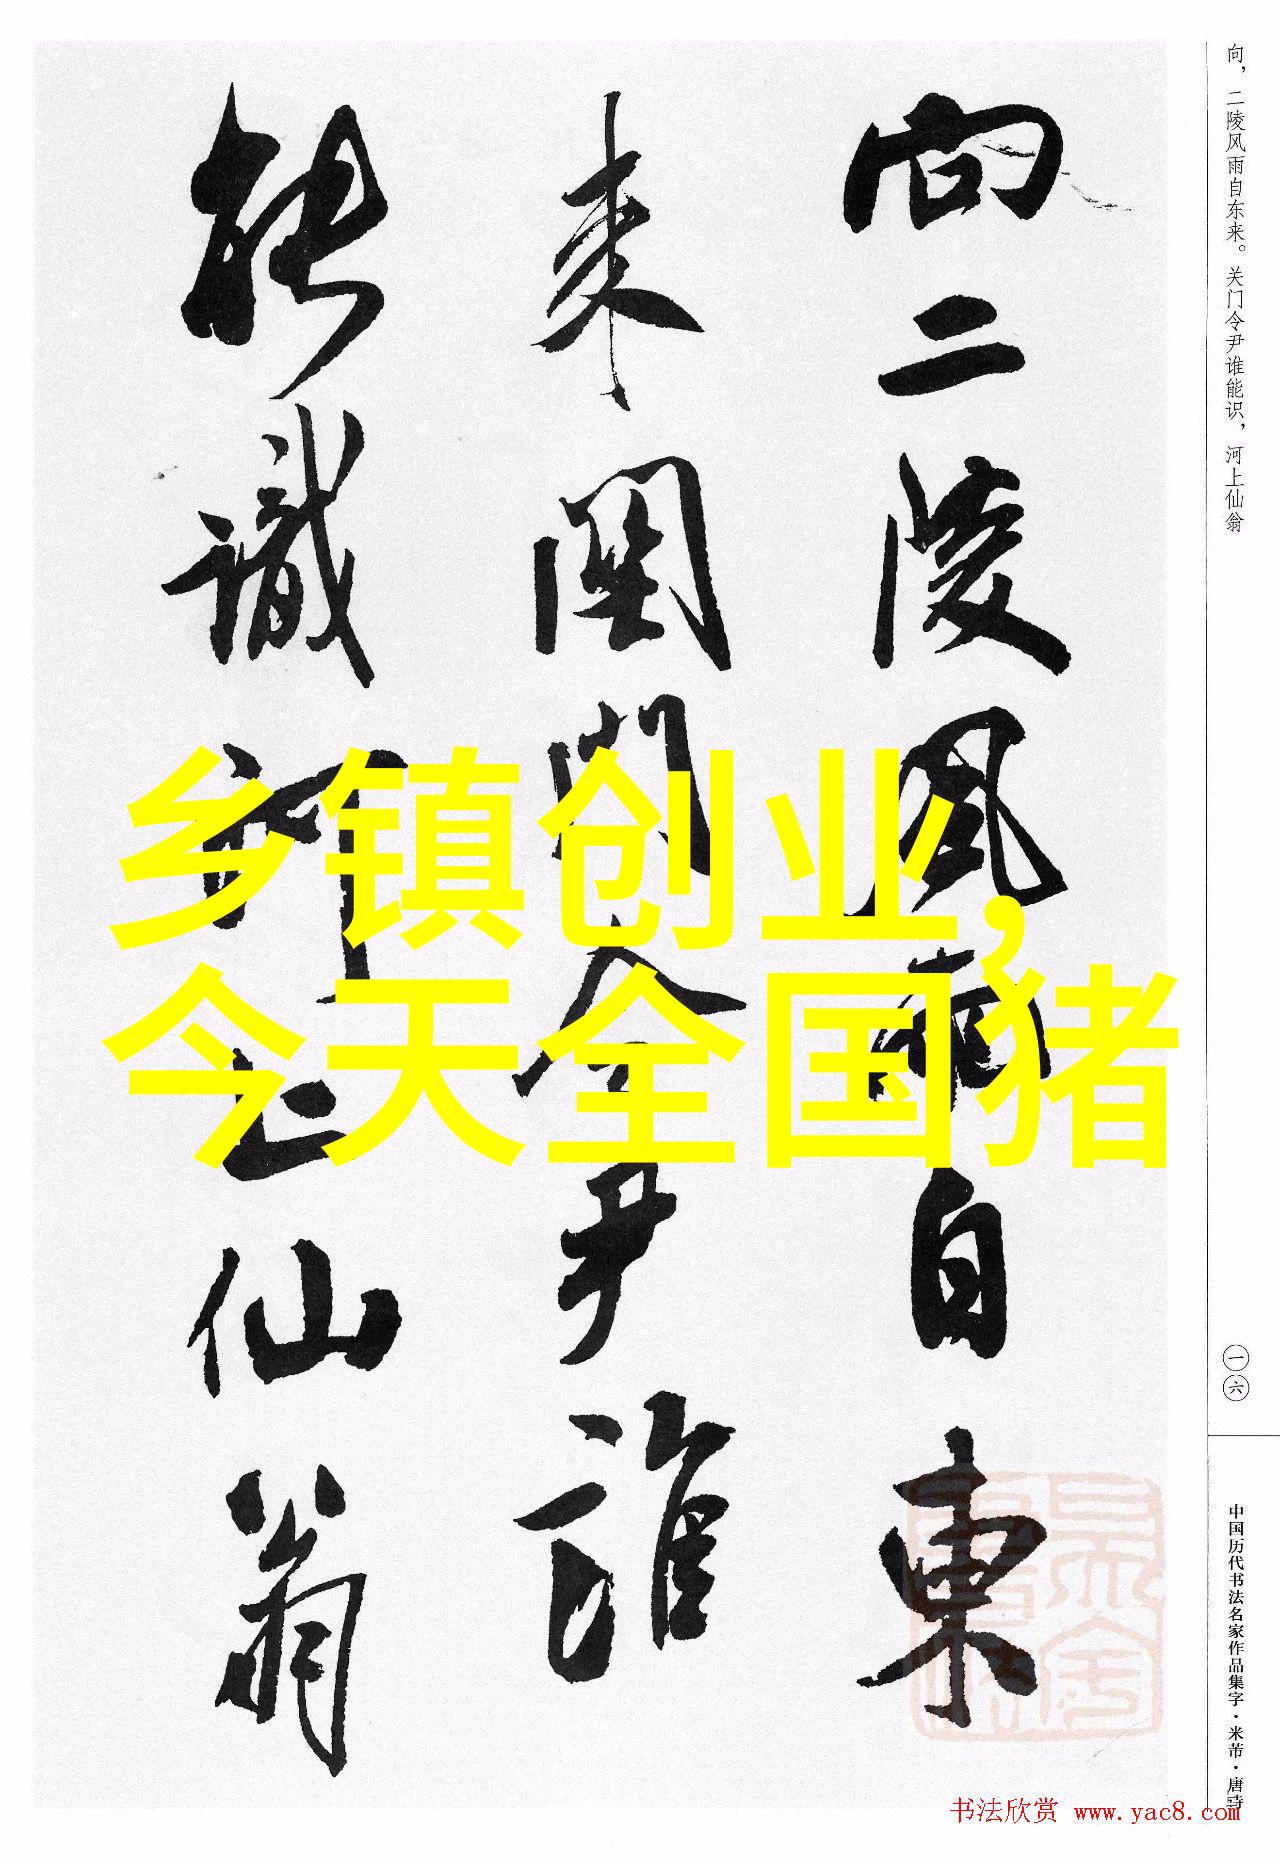 向二陵风雨自東
来関門令尹誰
能識河上仙翁
乡镇创业，
今天全国猪
向，二陵风雨自东来。关门令尹谁能识，河上仙翁
一六
中国历代书法名家作品集字·米芾·唐诗
书法欣赏 www.yac8.com